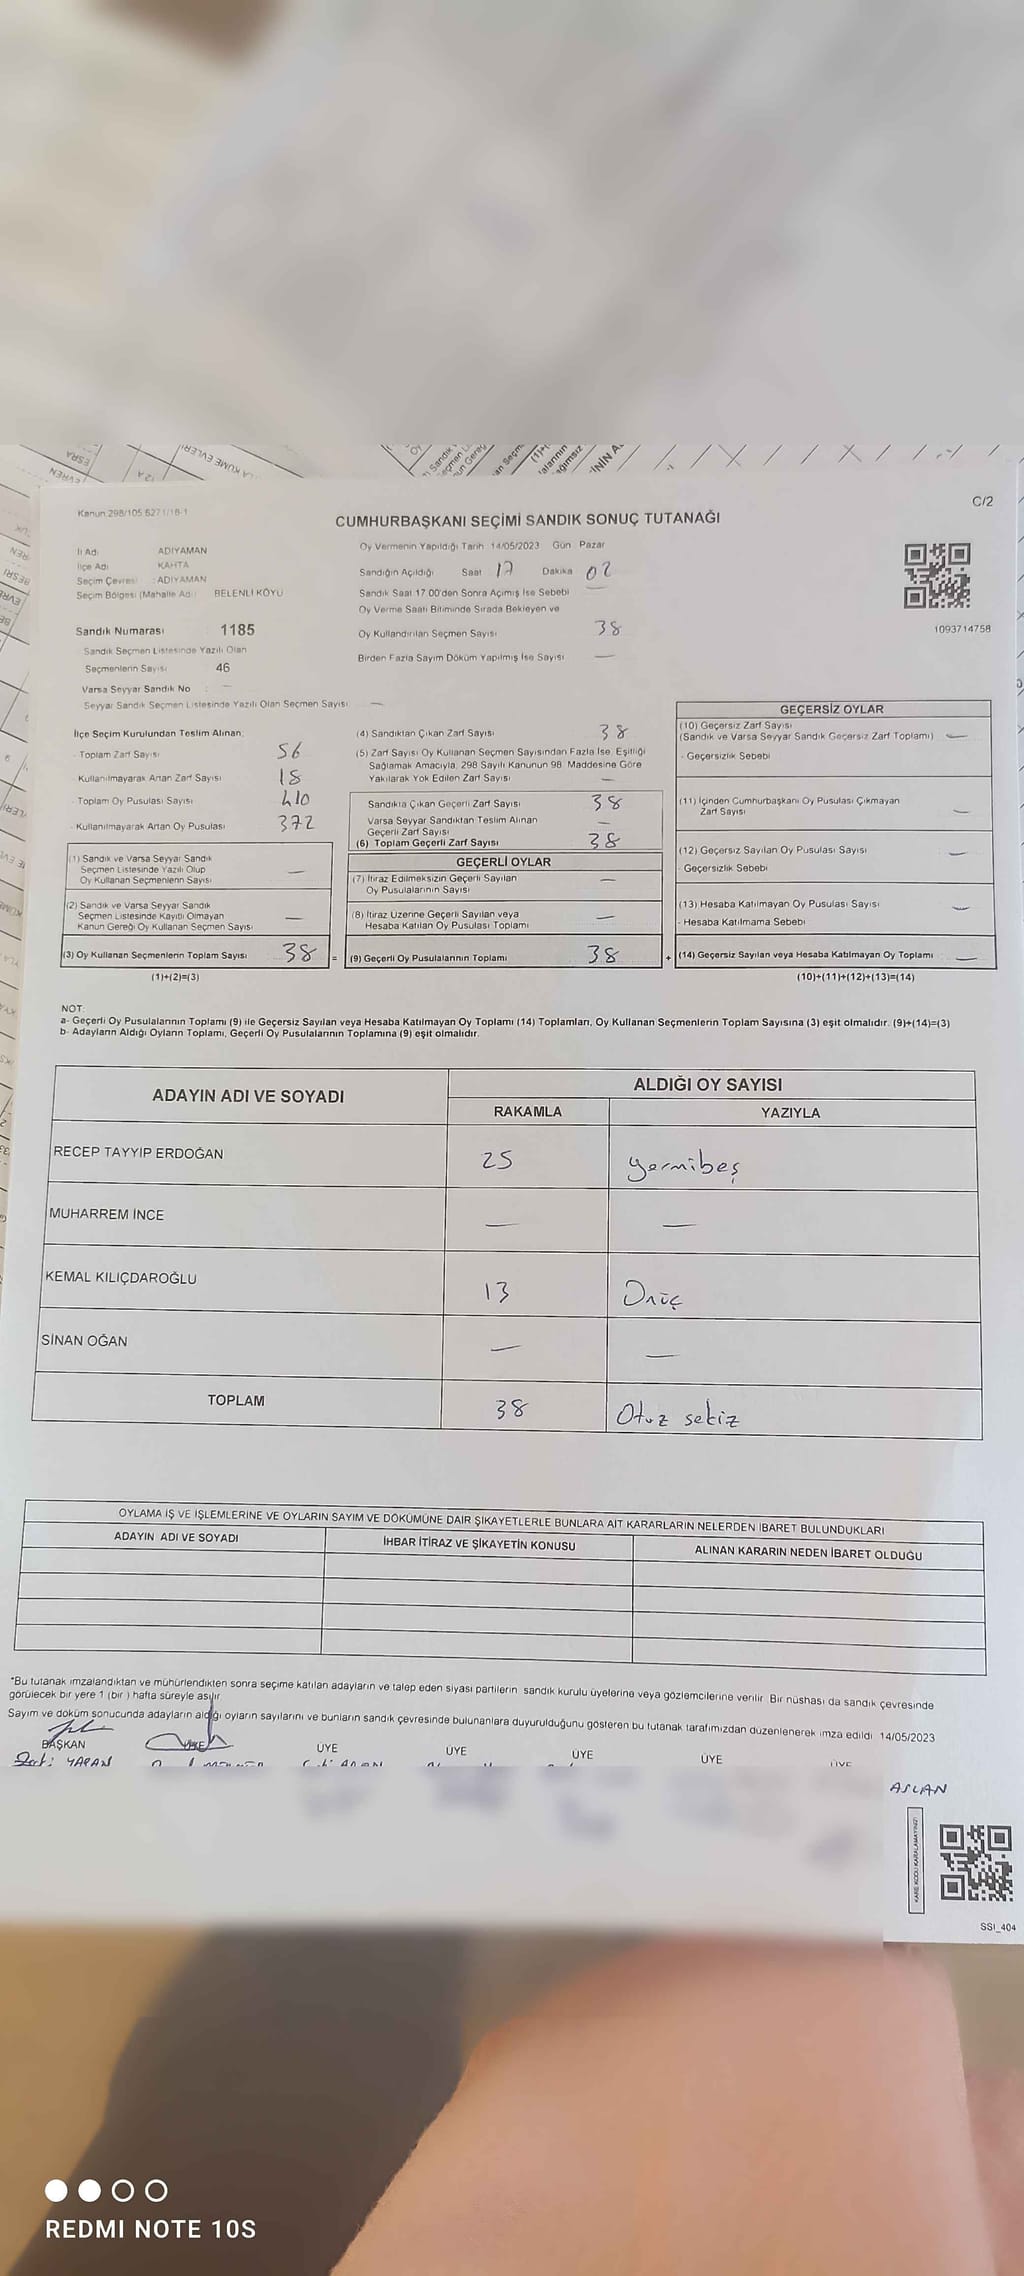 C/2
Kanun 298/105 6271/18-1
CUMHURBAŞKANI SEÇİMİ SANDIK SONUÇ TUTANAĞI
İl Adı ADIYAMAN
İlçe Adı KAHTA
Seçim Çevresi : ADIYAMAN
Seçim Bölgesi (Mahalle Adı) BELENLİ KÖYÜ
Sandık Numarası 1185
Sandık Seçmen Listesinde Yazılı Olan
Seçmenlerin Sayısı 46
Varsa Seyyar Sandık No : —
Seyyar Sandık Seçmen Listesinde Yazılı Olan Seçmen Sayısı —
Oy Vermenin Yapıldığı Tarih 14/05/2023 Gün Pazar
Sandığın Açıldığı Saat 17 Dakika 02
Sandık Saat 17.00'den Sonra Açımış İse Sebebi —
Oy Verme Saati Bitiminde Sırada Bekleyen ve
Oy Kullandırılan Seçmen Sayısı 38
Birden Fazla Sayım Döküm Yapılmış İse Sayısı —
1093714758
İlçe Seçim Kurulundan Teslim Alınan;
- Toplam Zarf Sayısı 56
- Kullanılmayarak Artan Zarf Sayısı 18
- Toplam Oy Pusulası Sayısı 410
- Kullanılmayarak Artan Oy Pusulası 372
(1) Sandık ve Varsa Seyyar Sandık
Seçmen Listesinde Yazılı Olup
Oy Kullanan Seçmenlerin Sayısı —
(2) Sandık ve Varsa Seyyar Sandık
Seçmen Listesinde Kayıtlı Olmayan
Kanun Gereği Oy Kullanan Seçmen Sayısı —
(3) Oy Kullanan Seçmenlerin Toplam Sayısı 38 =
(1)+(2)=(3)
(4) Sandıktan Çıkan Zarf Sayısı 38
(5) Zarf Sayısı Oy Kullanan Seçmen Sayısından Fazla İse, Eşitliği
Sağlamak Amacıyla, 298 Sayılı Kanunun 98. Maddesine Göre
Yakılarak Yok Edilen Zarf Sayısı —
Sandıkta Çıkan Geçerli Zarf Sayısı 38
Varsa Seyyar Sandıktan Teslim Alınan
Geçerli Zarf Sayısı —
(6) Toplam Geçerli Zarf Sayısı 38
GEÇERLİ OYLAR
(7) İtiraz Edilmeksizin Geçerli Sayılan
Oy Pusulalarının Sayısı —
(8) İtiraz Üzerine Geçerli Sayılan veya
Hesaba Katılan Oy Pusulası Toplamı —
(9) Geçerli Oy Pusulalarının Toplamı 38 +
GEÇERSİZ OYLAR
(10) Geçersiz Zarf Sayısı
(Sandık ve Varsa Seyyar Sandık Geçersiz Zarf Toplamı) —
- Geçersizlik Sebebi
(11) İçinden Cumhurbaşkanı Oy Pusulası Çıkmayan
Zarf Sayısı —
(12) Geçersiz Sayılan Oy Pusulası Sayısı —
- Geçersizlik Sebebi
(13) Hesaba Katılmayan Oy Pusulası Sayısı —
- Hesaba Katılmama Sebebi
(14) Geçersiz Sayılan veya Hesaba Katılmayan Oy Toplamı —
(10)+(11)+(12)+(13)=(14)
NOT:
a- Geçerli Oy Pusulalarının Toplamı (9) ile Geçersiz Sayılan veya Hesaba Katılmayan Oy Toplamı (14) Toplamları, Oy Kullanan Seçmenlerin Toplam Sayısına (3) eşit olmalıdır. (9)+(14)=(3)
b- Adayların Aldığı Oyların Toplamı, Geçerli Oy Pusulalarının Toplamına (9) eşit olmalıdır.
ADAYIN ADI VE SOYADI ALDIĞI OY SAYISI
RAKAMLA YAZIYLA
RECEP TAYYİP ERDOĞAN 25 yermibeş
MUHARREM İNCE — —
KEMAL KILIÇDAROĞLU 13 Onüç
SİNAN OĞAN — —
TOPLAM 38 Otuz sekiz
OYLAMA İŞ VE İŞLEMLERİNE VE OYLARIN SAYIM VE DÖKÜMÜNE DAİR ŞİKAYETLERLE BUNLARA AİT KARARLARIN NELERDEN İBARET BULUNDUKLARI
ADAYIN ADI VE SOYADI İHBAR İTİRAZ VE ŞİKAYETİN KONUSU ALINAN KARARIN NEDEN İBARET OLDUĞU
*Bu tutanak imzalandıktan ve mühürlendikten sonra seçime katılan adayların ve talep eden siyasi partilerin sandık kurulu üyelerine veya gözlemcilerine verilir. Bir nüshası da sandık çevresinde
görülecek bir yere 1 (bir ) hafta süreyle asılır.
Sayım ve döküm sonucunda adayların aldığı oyların sayılarını ve bunların sandık çevresinde bulunanlara duyurulduğunu gösteren bu tutanak tarafımızdan düzenlenerek imza edildi. 14/05/2023
BAŞKAN ÜYE ÜYE ÜYE ÜYE ÜYE
YAPAN
ASLAN
KARE KODU KARALAMAYINIZ!
SSI_404
REDMI NOTE 10S